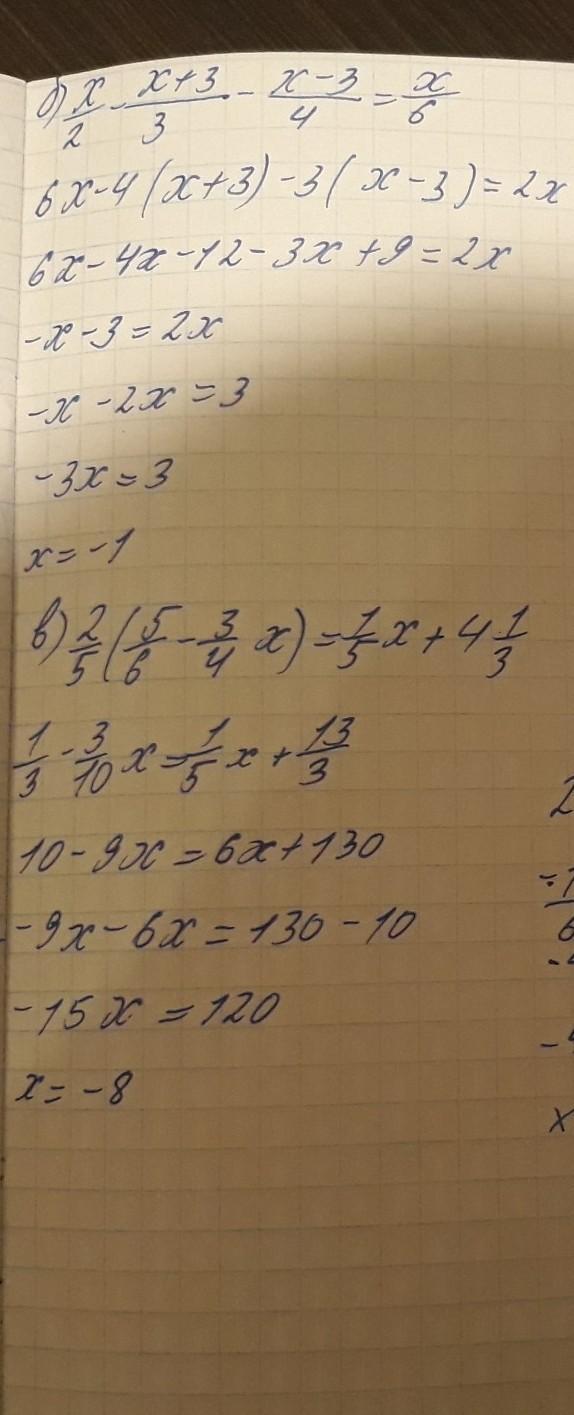 б) x/2 - (x+3)/3 - (x-3)/4 = x/6
6x-4(x+3)-3(x-3)=2x
6x-4x-12-3x+9=2x
-x-3=2x
-x-2x=3
-3x=3
x=-1
в) 2/5 (5/6 - 3/4 x) = 1/5 x + 4 1/3
1/3 - 3/10 x = 1/5 x + 13/3
10-9x=6x+130
-9x-6x=130-10
-15x=120
x=-8